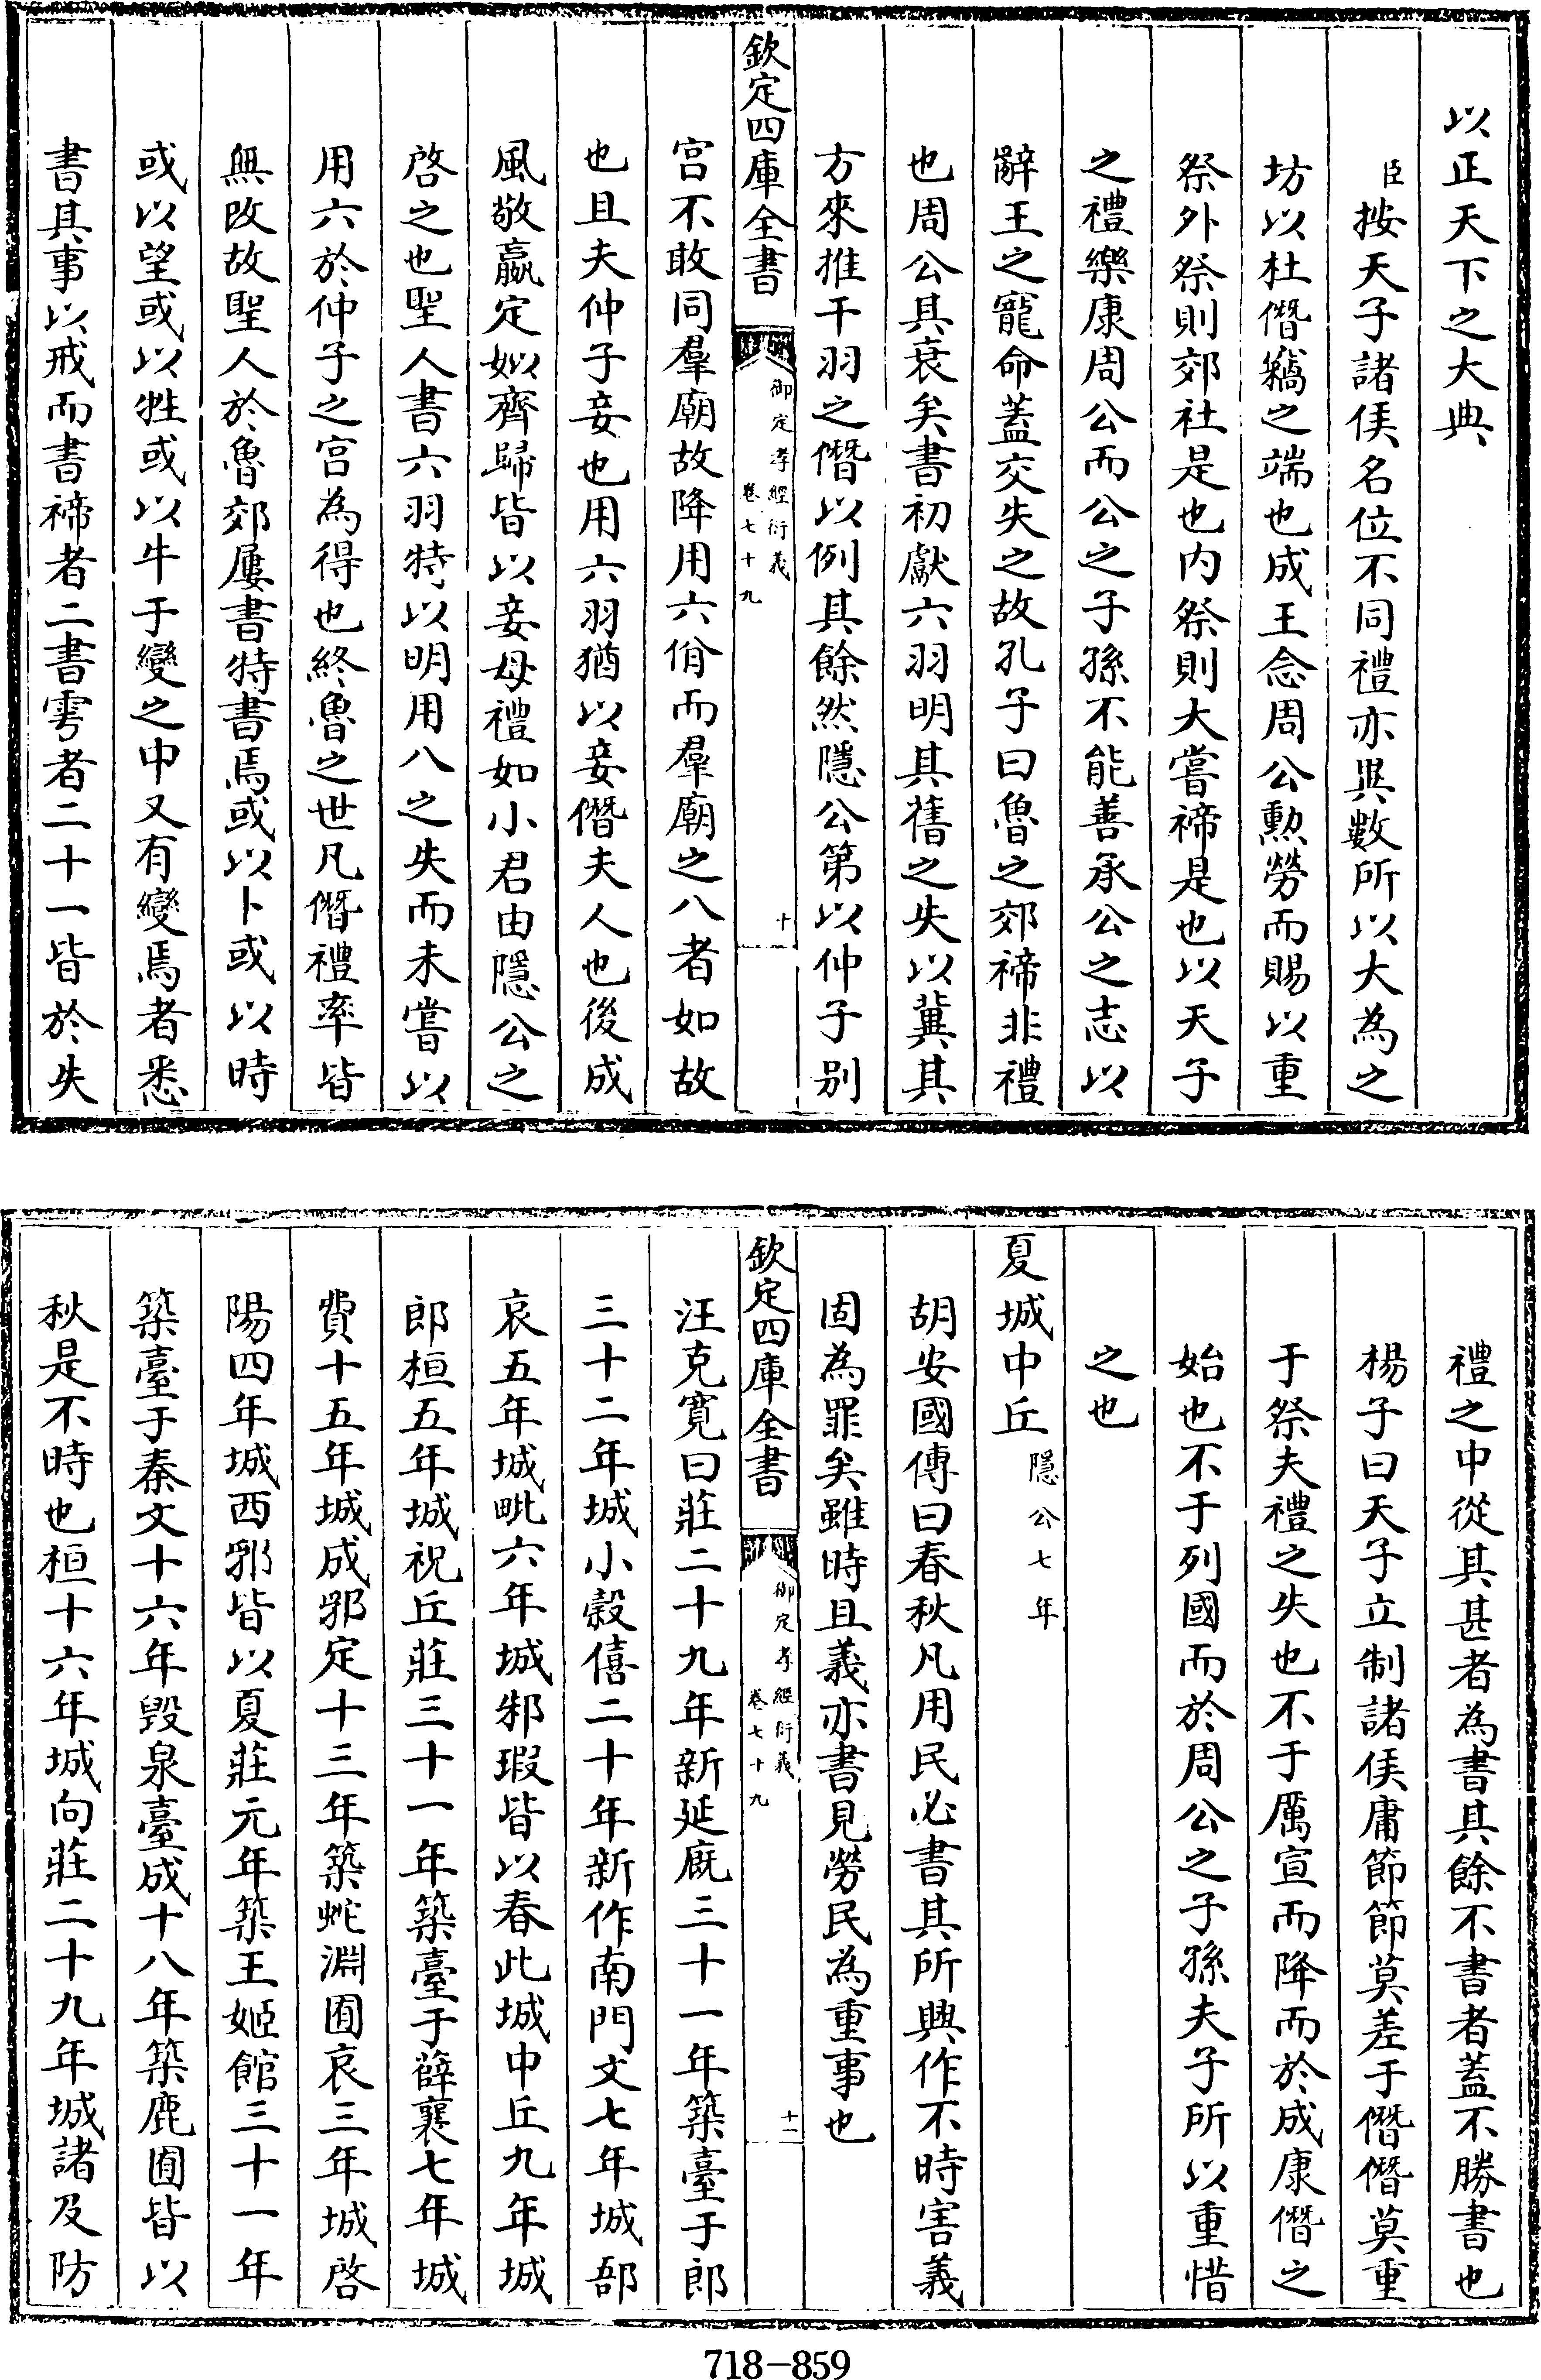 以正天下之大典
臣按天子諸侯名位不同禮亦異數所以大為之
坊以杜僭竊之端也成王念周公勲勞而賜以重
祭外祭則郊社是也内祭則大嘗禘是也以天子
之禮樂康周公而公之子孫不能善承公之志以
辭王之寵命蓋交失之故孔子曰魯之郊禘非禮
也周公其衰矣書初獻六羽明其舊之失以冀其
方來推干羽之僭以例其餘然隱公第以仲子别
欽定四庫全書
御定孝經衍義
卷七十九
十
宫不敢同羣廟故降用六佾而羣廟之八者如故
也且夫仲子妾也用六羽猶以妾僭夫人也後成
風敬嬴定姒齊歸皆以妾母禮如小君由隱公之
啓之也聖人書六羽特以明用八之失而未嘗以
用六於仲子之宫為得也終魯之世凡僭禮率皆
無改故聖人於魯郊屢書特書焉或以卜或以時
或以望或以牲或以牛于變之中又有變焉者悉
書其事以戒而書禘者二書雩者二十一皆於失
禮之中從其甚者為書其餘不書者蓋不勝書也
楊子曰天子立制諸侯庸節節莫差于僭僭莫重
于祭夫禮之失也不于厲宣而降而於成康僭之
始也不于列國而於周公之子孫夫子所以重惜
之也
夏城中丘隱公七年
胡安國傳曰春秋凡用民必書其所興作不時害義
固為罪矣雖時且義亦書見勞民為重事也
欽定四庫全書
御定孝經衍義
卷七十九
十一
汪克寛曰莊二十九年新延廐三十一年築臺于郎
三十二年城小穀僖二十年新作南門文七年城郚
哀五年城毗六年城邾瑕皆以春此城中丘九年城
郎桓五年城祝丘莊三十一年築臺于薛襄七年城
費十五年城成郛定十三年築蛇淵囿哀三年城啓
陽四年城西郛皆以夏莊元年築王姬館三十一年
築臺于秦文十六年毁泉臺成十八年築鹿囿皆以
秋是不時也桓十六年城向莊二十九年城諸及防
718-859